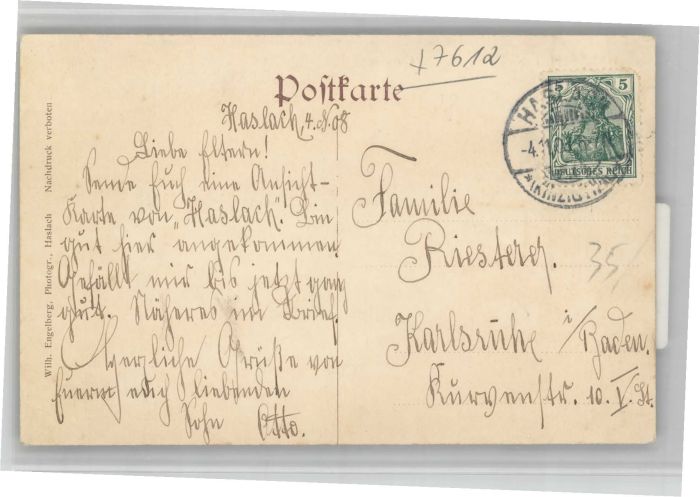 +7612
Postkarte
Haslach, 4. N. 08
Liebe Eltern!
Sende Euch eine Ansicht-
Karte von „Haslach“. Bin
gut hier angekommen.
Gefällt mir bis jetzt ganz
gut. Näheres im Brief.
Herzliche Grüße von
Eurem Euch liebenden
Sohn Otto.
Familie
Riesterer.
Karlsruhe i/Baden.
Kurvenstr. 10. V. St.
35,
5 5
DEUTSCHES REICH
HASLACH
-4.11.
*(KINZIGTHAL)
Wilh. Engelberg, Photogr., Haslach Nachdruck verboten